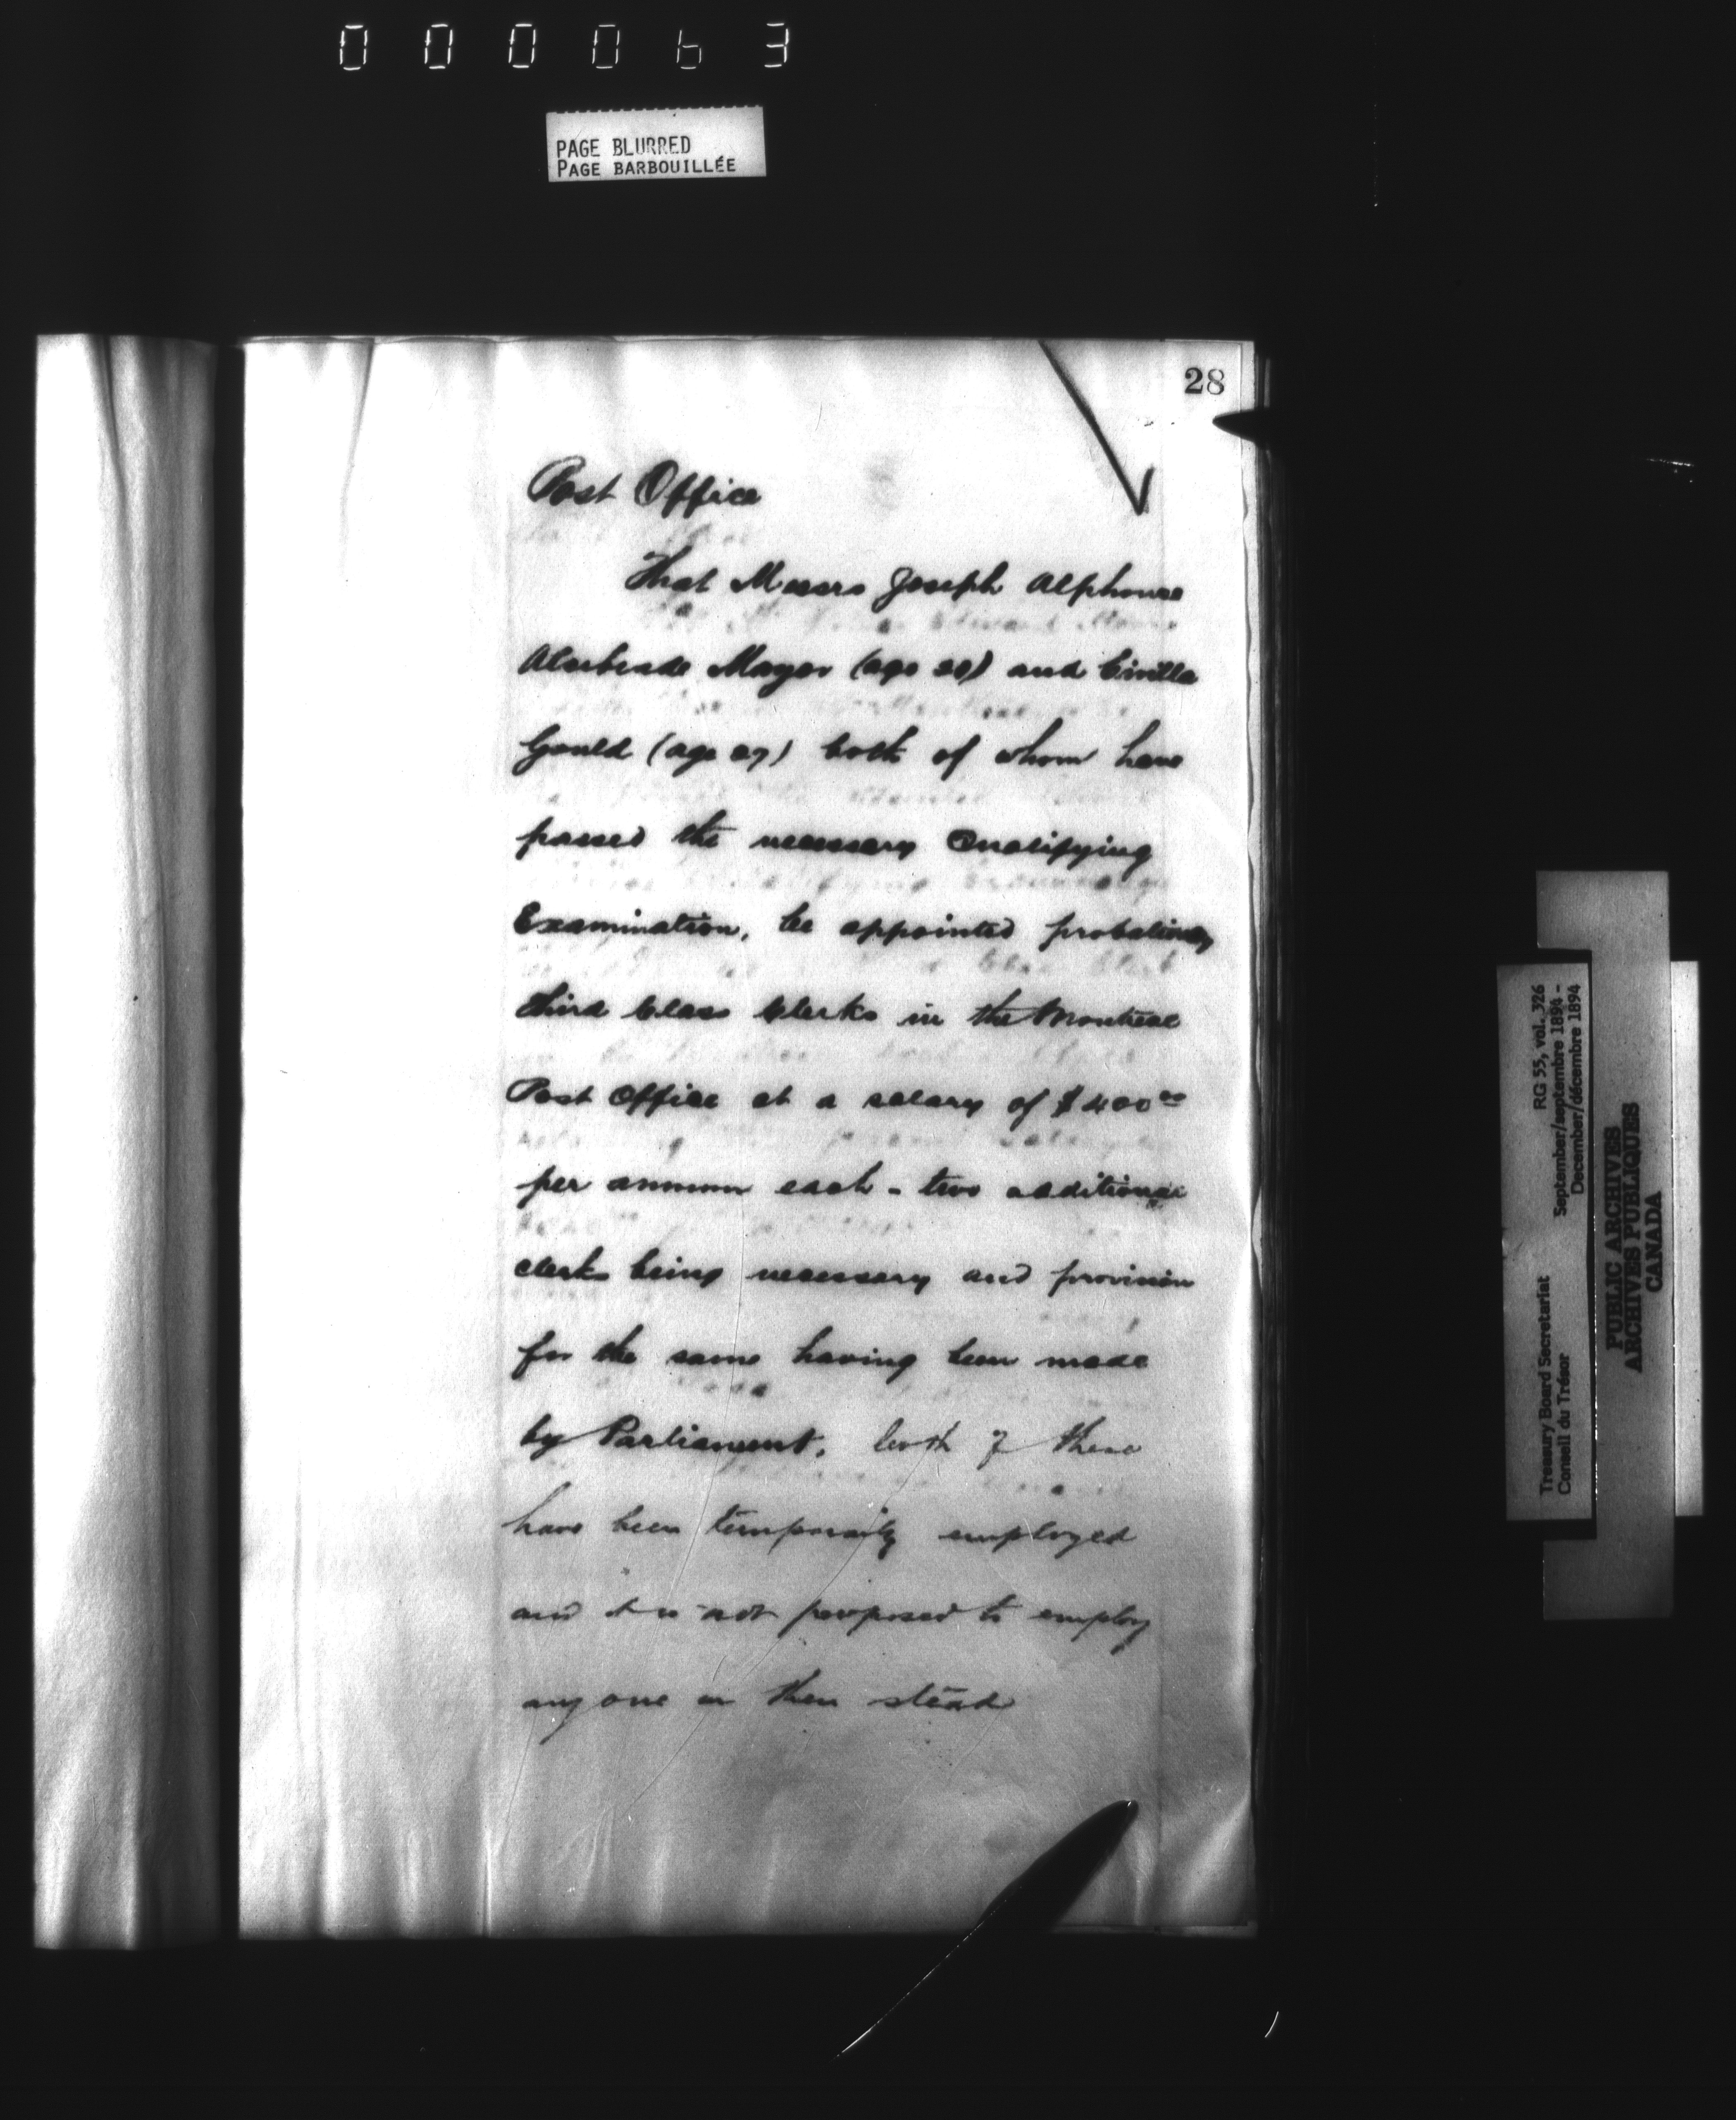 000063
PAGE BLURRED
PAGE BARBOUILLÉE
28
Post Office
That Messrs Joseph Alphonse
Mayer (age 20) and
Gould (age 27) both of whom have
passed the necessary Qualifying
Examination, be appointed probationary
third Class Clerks in the Montreal
Post Office at a salary of $400.00
per annum each - two additional
clerks being necessary and provision
for the same having been made
by Parliament, both of these
have been temporarily employed
and it is not proposed to employ
any one in their stead
Treasury Board Secretariat RG 55, vol. 326
Conseil du Trésor September/septembre 1894 -
December/décembre 1894
PUBLIC ARCHIVES
ARCHIVES PUBLIQUES
CANADA